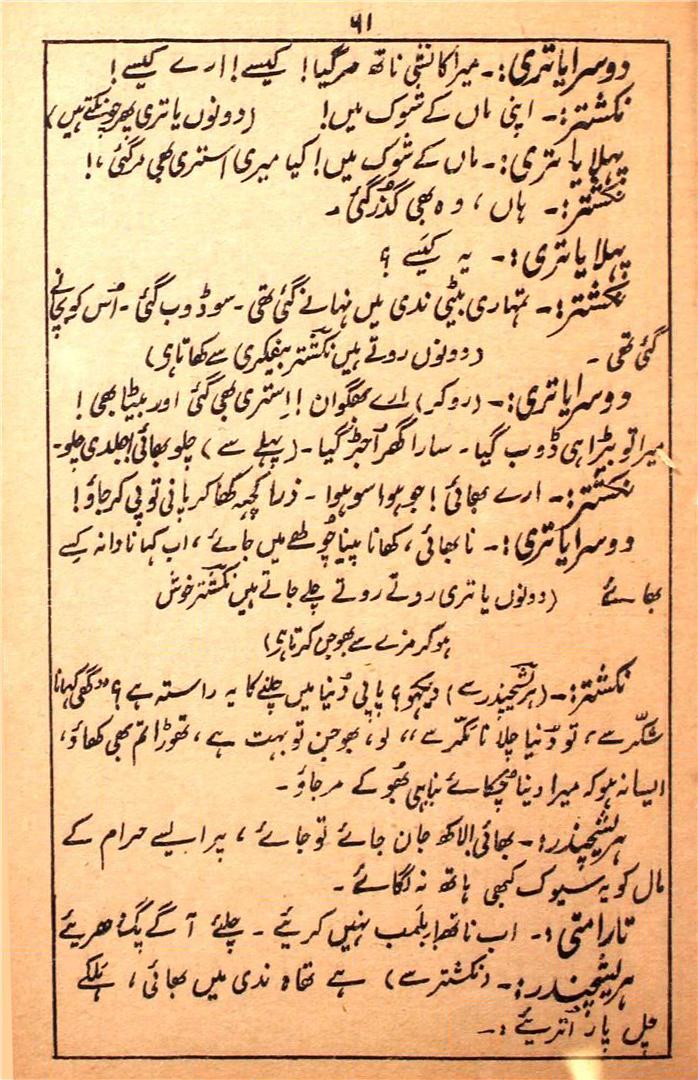 ۶۱
دوسرا یاتری:۔ میرا کانشی ناتھ مرگیا! کیسے! ارے کیسے!
نکشتر:۔ اپنی ماں کے شوک میں! (دونوں یاتری پھر چونکتے ہیں)
پہلا یاتری:۔ ماں کے شوک میں! کیا میری استری بھی مرگئی،!
نکشتر:۔ ہاں، وہ بھی گذرگئی۔
پہلا یاتری:۔ یہ کیسے؟
نکشتر:۔ تمہاری بیٹی ندی میں نہانے گئی تھی۔ سو ڈوب گئی۔ اُس کو بچانے
گئی تھی۔ (دونوں روتے ہیں نکشتر بیفکری سے کھاتا ہی)
دوسرا یاتری:۔ (روکر) اے بھگوان! اِستری بھی گئی اور بیٹا بھی!
میرا تو بیڑا ہی ڈوب گیا۔ سارا گھر اُجڑ گیا۔ (پہلے سے) چلو بھائی! جلدی چلو۔
نکشتر:۔ ارے بھائی! جو ہوا سو ہوا۔ ذرا کچھ کھا کر پانی تو پی کر جاؤ!
دوسرا یاتری:۔ نا بھائی، کھانا پینا چُولھے میں جائے، اب کہانا دانہ کِسے
بھائے (دونوں یاتری روتے روتے چلے جاتے ہیں نکشتر خوش
ہو کر مزے سے بھوجن کرتا ہی)
نکشتر:۔ (ہریشچندر سے) دیکھو؟ پاپی دُنیا میں چلنے کا یہ راستہ ہے؟ ”گھی کہانا
شکّر سے، تو دُنیا چلانا مکّر سے“ لو، بھوجن تو بہت ہے، تھوڑا تم بھی کھاؤ،
ایسا نہ ہو کہ میرا دینا چُکائے بنا ہی بھُوکے مرجاؤ۔
ہریشچندر:۔ بھائی! لاکھ جان جائے تو جائے، پر ایسے حرام کے
مال کو یہ سیوک کبھی ہاتھ نہ لگائے۔
تارامتی:۔ اب ناتھ! بلمب نہیں کریئے۔ چلئے آگے پگ دھریئے
ہریشچندر:۔ (نکشتر سے) ہے تھاہ ندی میں بھائی، ہلکے
چل پار اُتریئے:۔